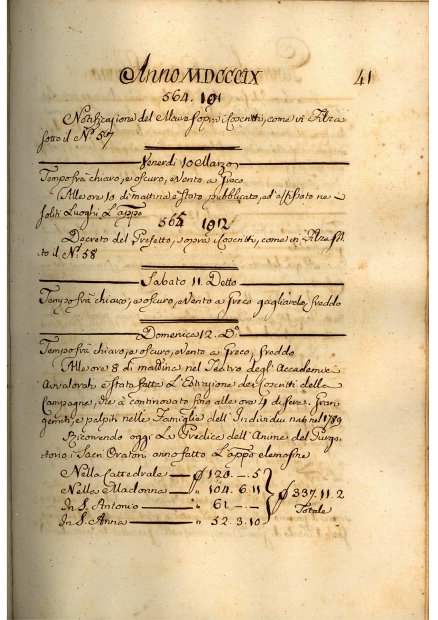 Anno MDCCCIX 41
564. 191
Notificazione del Maire sopra Coscritti, come in Filza
sotto il N.º 57
Venerdi 10 Marzo
Tempo frà chiaro, e oscuro, e vento a Greco
Alle ore 10 di mattina è stato pubblicato, ed affissato ne
soliti Luoghi L'appo
564 1912
Decreto del Prefetto, sopra Coscritti, come in Filza sot,
to il N.º 58
Sabato 11. Detto
Tempo frà chiaro, e oscuro, e vento a Greco gagliardo, freddo
Domenica 12. Dº
Tempo frà chiaro, e oscuro, e vento a Greco, freddo
Alle ore 8 di mattina nel Teatro degl'Accademici
Avvalorati è stata fatta L'Estrazione dei Coscritti delle
Campagne, che à continovato fino alle ore 4 di sera. Gran
gemiti, e palpiti nelle Famiglie dell'Individui nati nel 1789
Ricorrendo oggi Le Prediche dell'Anime del Purga,
torio, i Sacri Oratori anno fatto L'appe elemosine
Nella Cattedrale — 120. — . 5
Nella Madonna — " 104. 6. 11 337. 11. 2
In S. Antonio — " 61. — . — Totale
In S. Anna — " 52. 3. 10